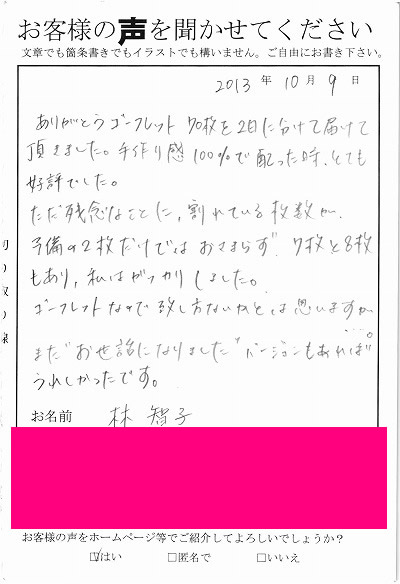 お客様の声を聞かせてください
文章でも箇条書きでもイラストでも構いません。ご自由にお書き下さい。
2013 年 10 月 9 日
ありがとうゴーフレット 70枚を2日に分けて届けて
頂きました。手作り感100%で配った時、とても
好評でした。
ただ残念なことに、割れている枚数が、
予備の2枚だけではおさまらず、7枚と8枚
もあり、私はがっかりしました。
ゴーフレットなので致し方ないかとは思いますが
…。
まだ"お世話になりました"バージョンもあれば
うれしかったです。
お名前 林 智子
お客様の声をホームページ等でご紹介してよろしいでしょうか?
☑はい □匿名で □いいえ
切り取り線